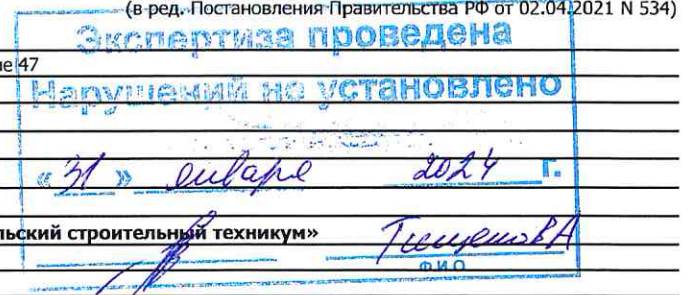 (в ред. Постановления Правительства РФ от 02.04.2021 N 534)
Экспертиза проведена
ие 47
Нарушений не установлено
« 31 » января 2024 г.
льский строительный техникум»
Ф.И.О.